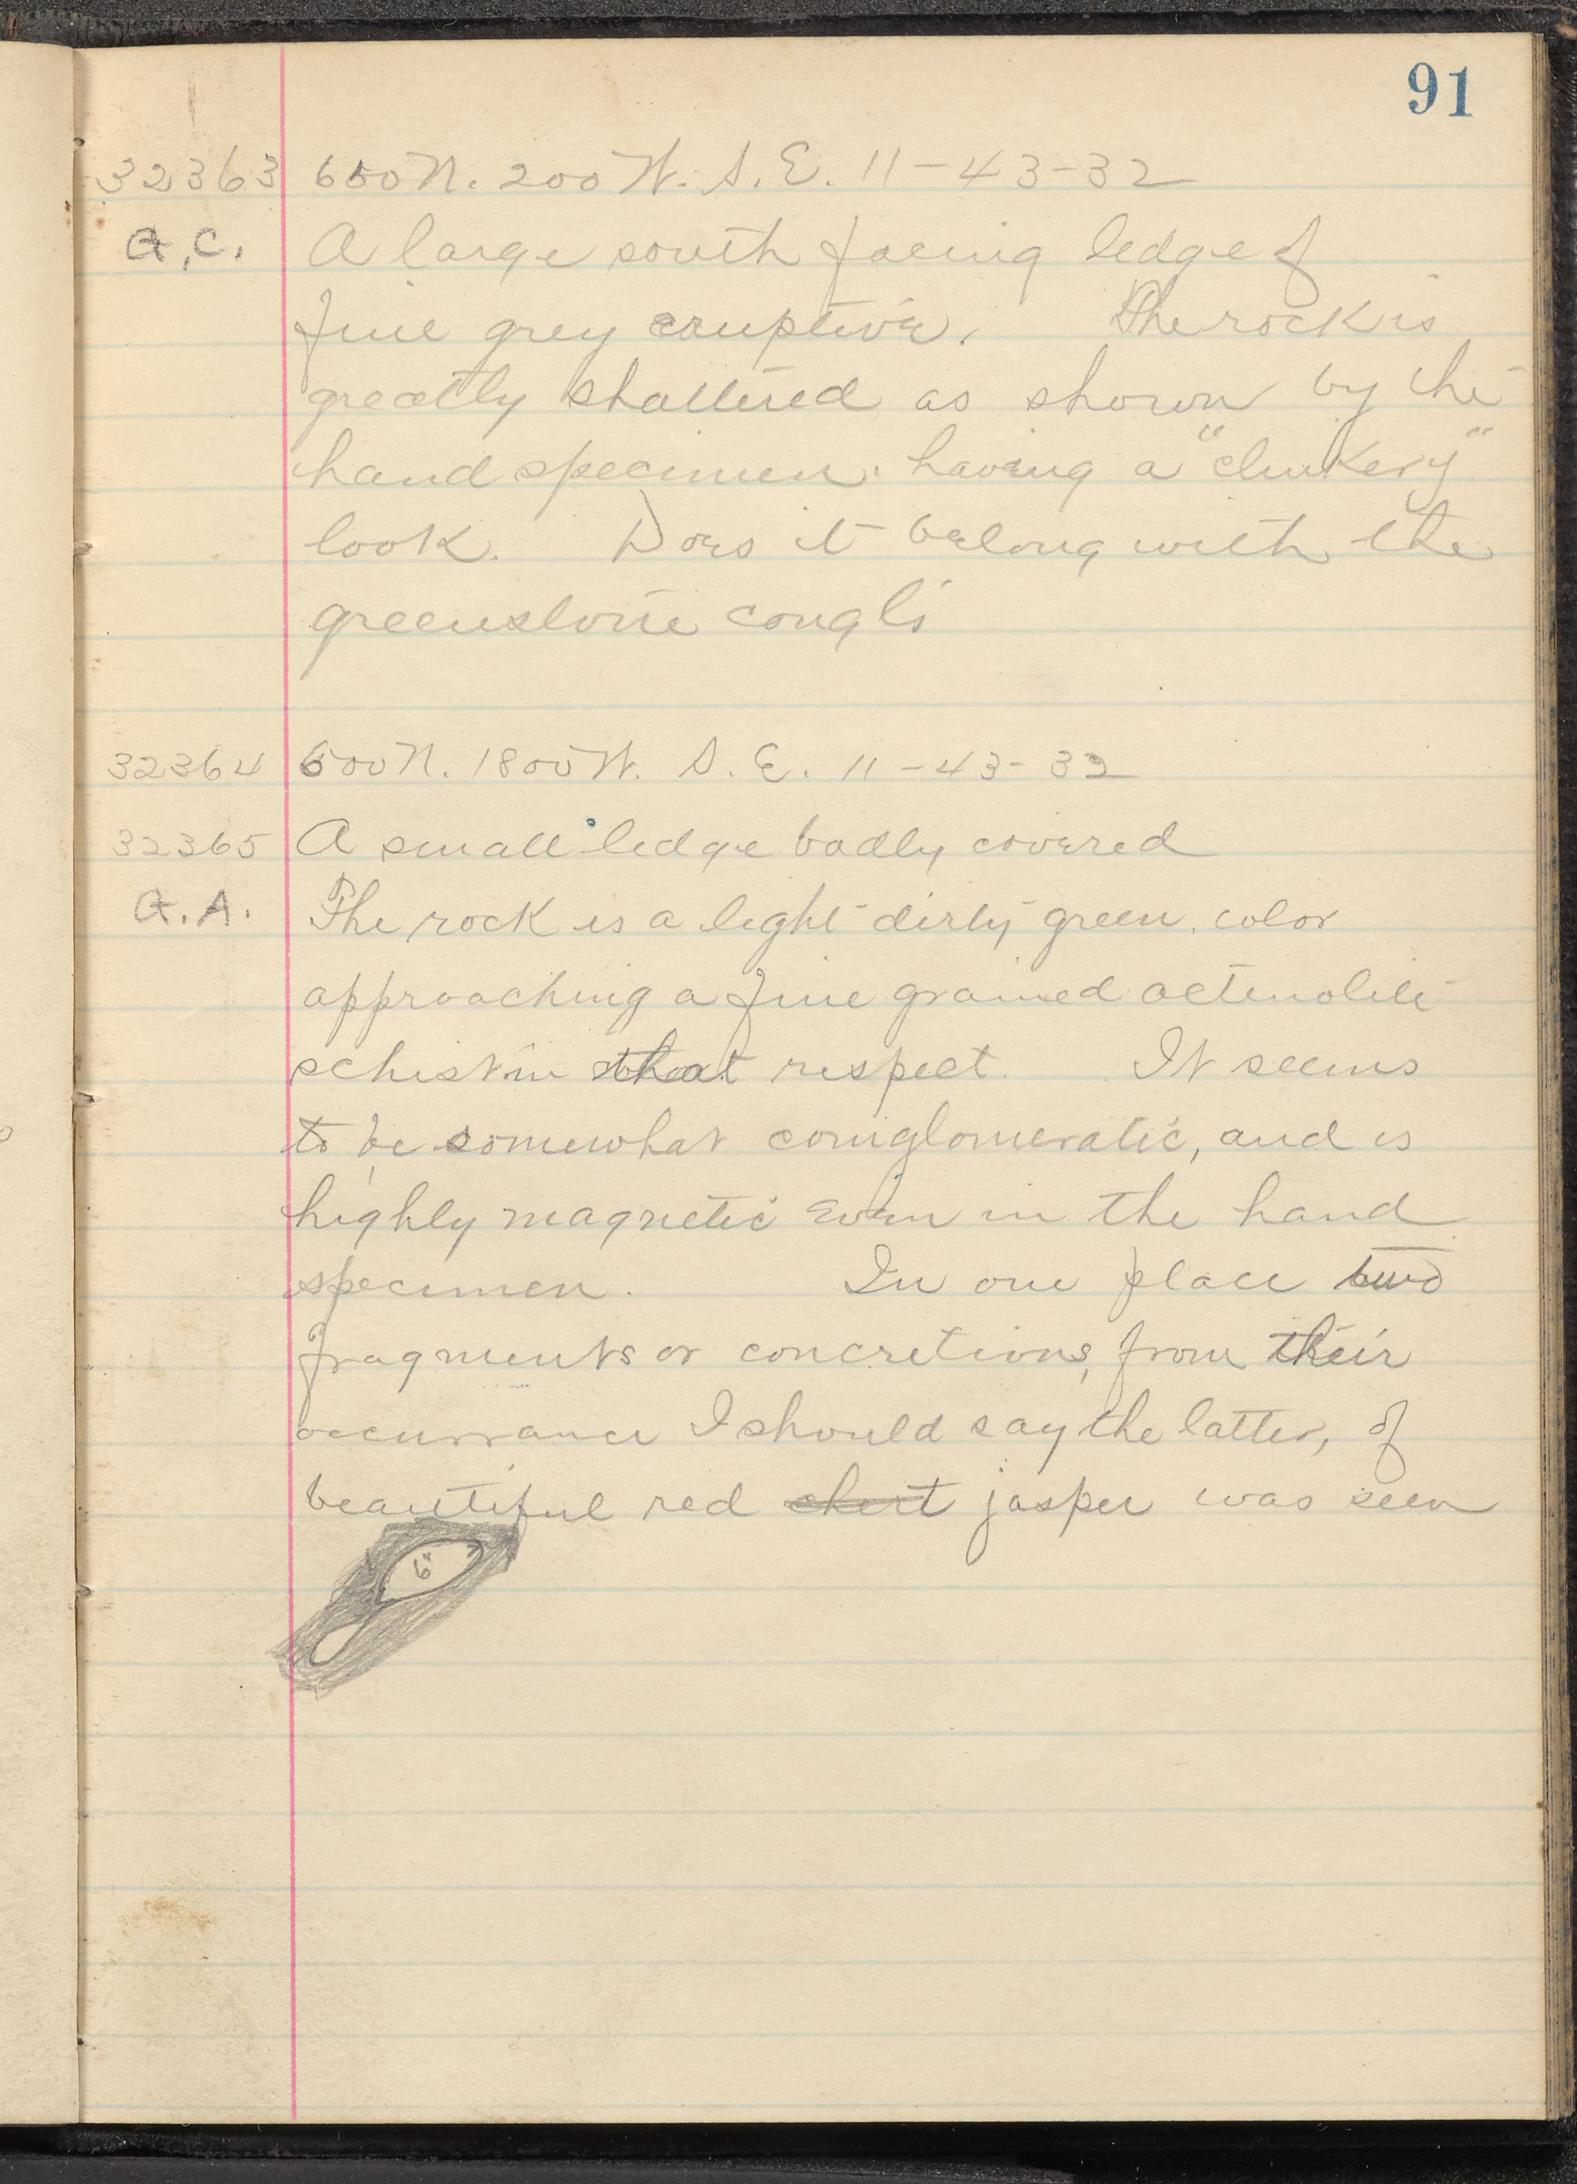 91
32363 600 N. 200 W. S.E. 11-43-32
A.C. A large south facing ledge of
fine grey eruptive. The rock is
greatly shattered as shown by the
hand specimen having a "clinkery"
look. Does it belong with the
greenstone congl's
32364 600 N. 1800 W. S.E. 11-43-32
32365 A small ledge badly covered
A.A. The rock is a light dirty green color
approaching a fine grained actinolite
schist in that respect. It seems
to be somewhat comglomeratic, and is
highly magnetic even in the hand
specimen. In one place two
fragments or concretions, from their
occurrance I should say the latter, of
beautiful red chert jasper was seen
6"